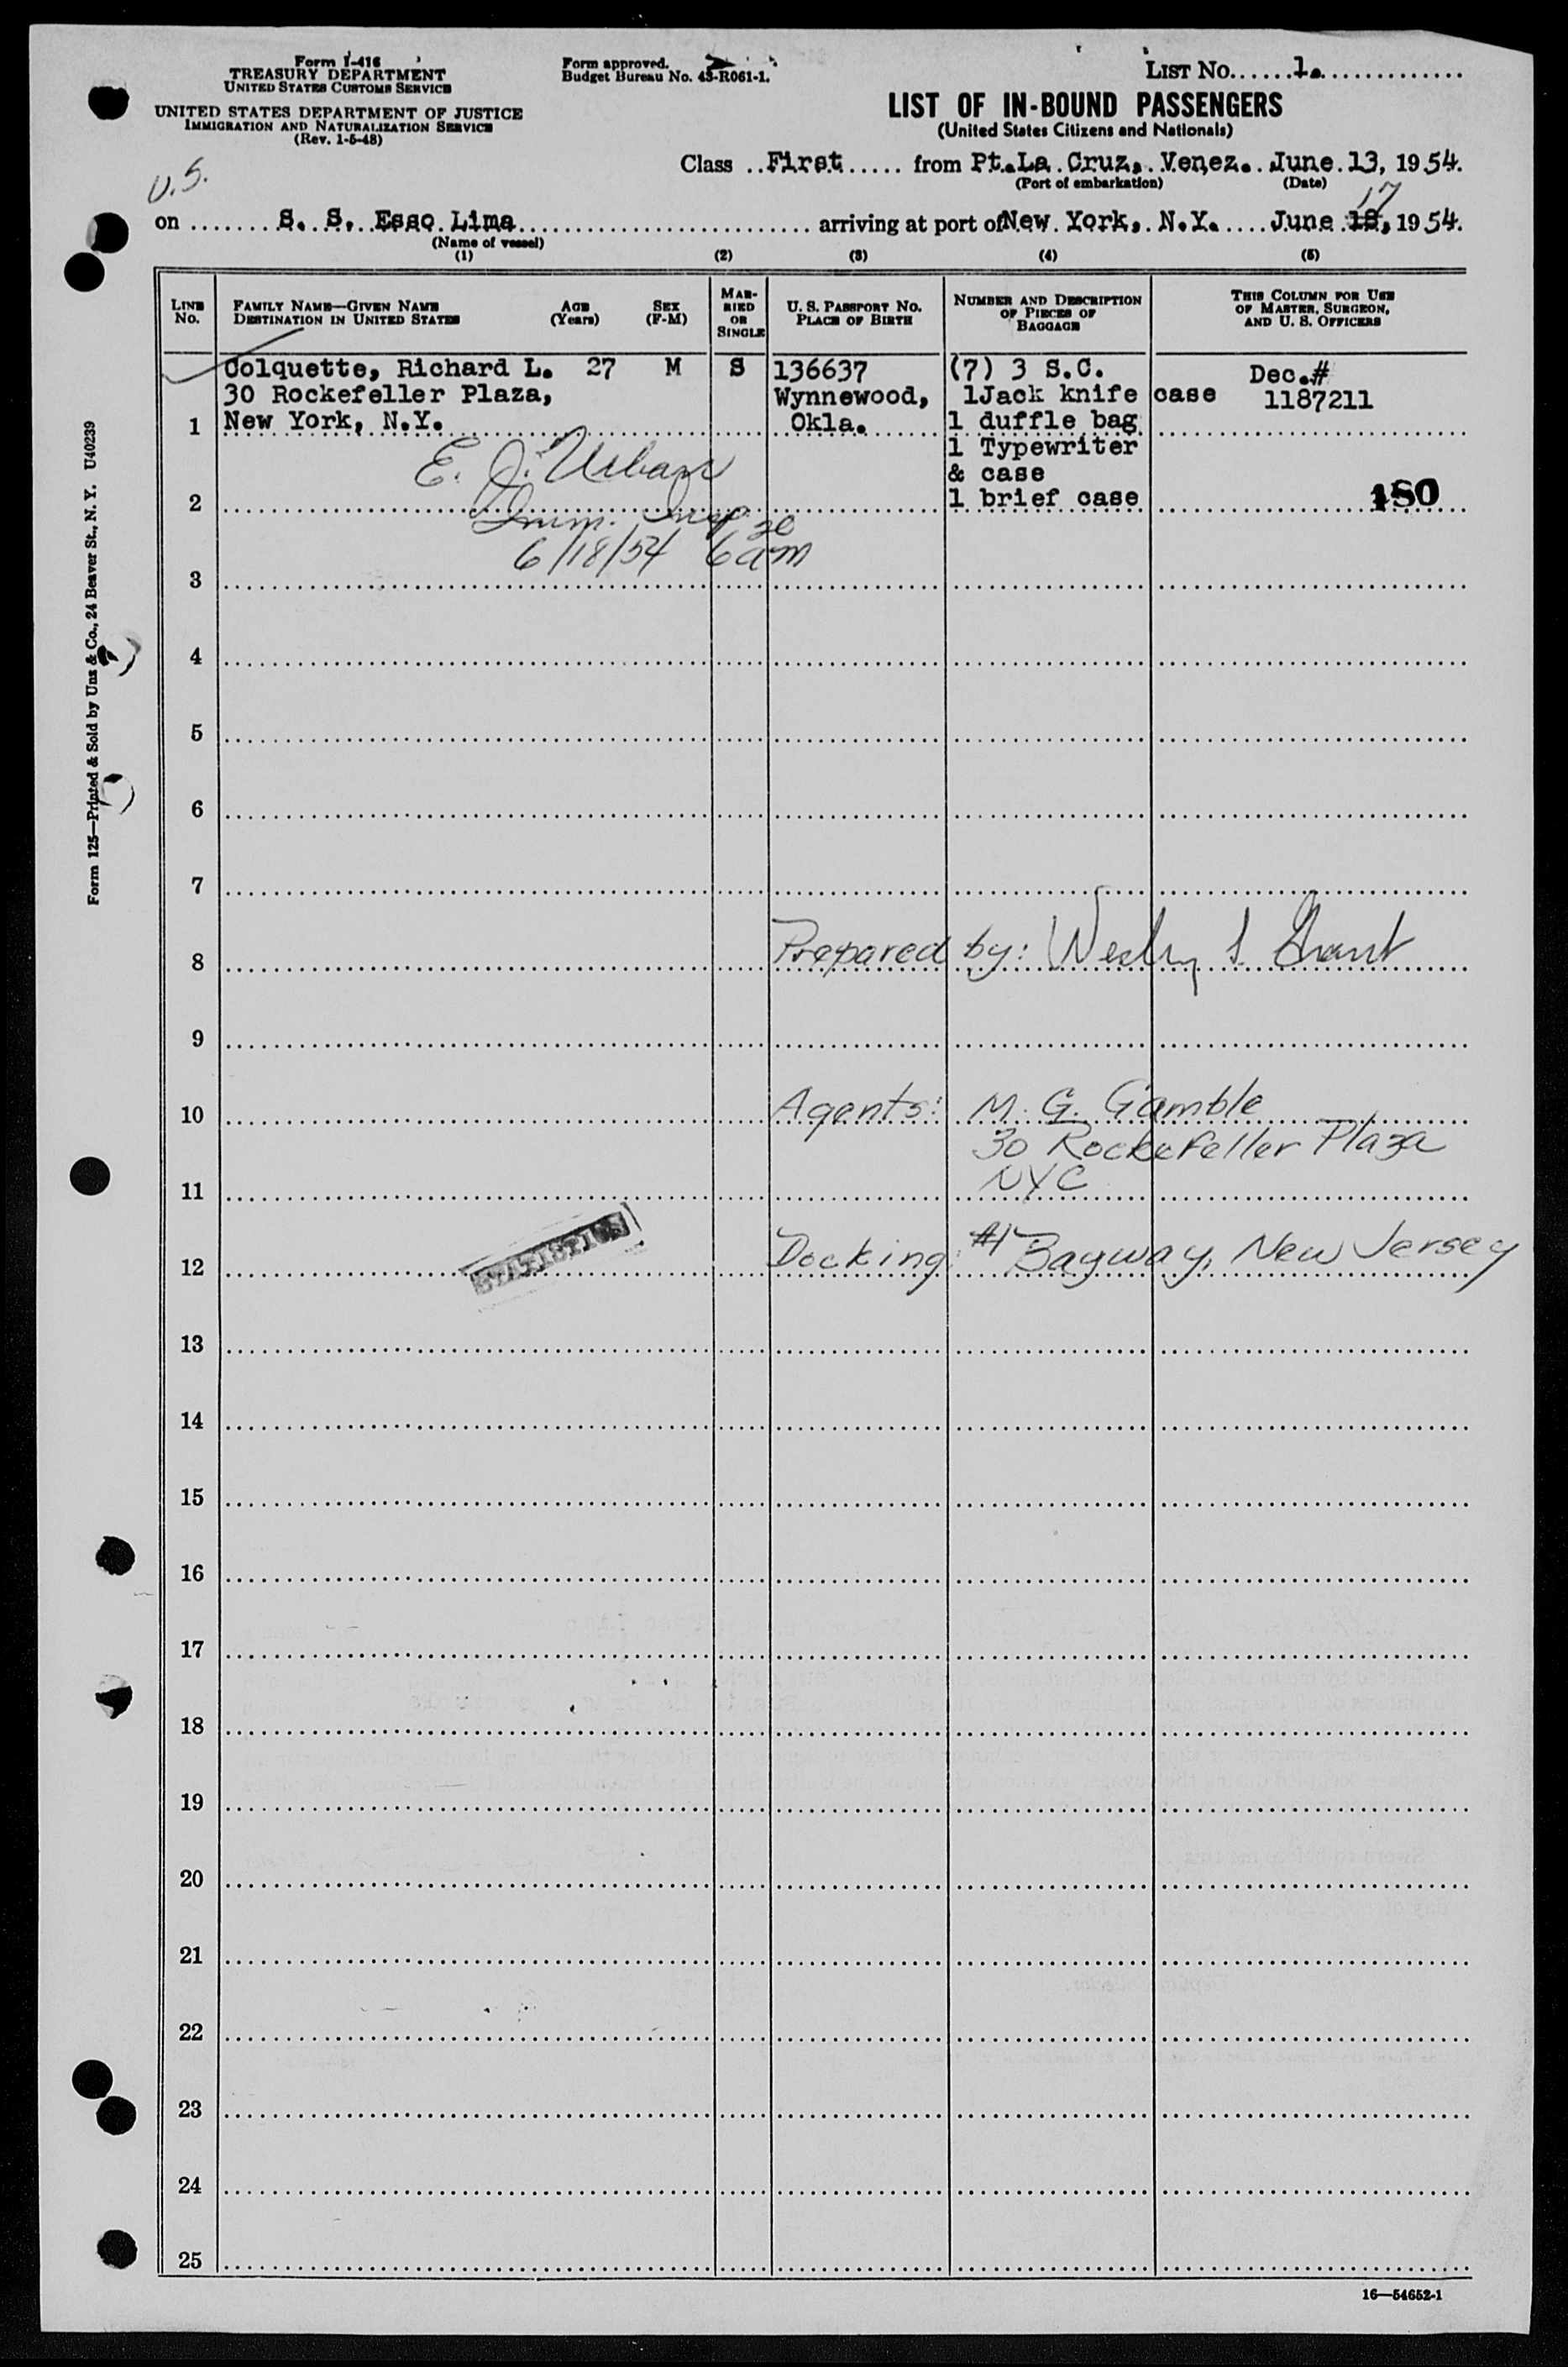 Form I-416
TREASURY DEPARTMENT
UNITED STATES CUSTOMS SERVICE
UNITED STATES DEPARTMENT OF JUSTICE
IMMIGRATION AND NATURALIZATION SERVICE
(Rev. 1-5-48)
Form approved.
Budget Bureau No. 43-R061-1.
LIST No. 1.
LIST OF IN-BOUND PASSENGERS
(United States Citizens and Nationals)
U.S.
Class First from Pt. La Cruz, Venez. June 13, 1954.
(Port of embarkation) (Date)
17
on S. S. Esso Lima arriving at port of New York, N.Y. June 18, 1954.
(Name of vessel)
(1) (2) (3) (4) (5)
LINE No. FAMILY NAME—GIVEN NAME DESTINATION IN UNITED STATES AGE (Years) SEX (F-M) MARRIED OR SINGLE U. S. PASSPORT No. PLACE OF BIRTH NUMBER AND DESCRIPTION OF PIECES OF BAGGAGE THIS COLUMN FOR USE OF MASTER, SURGEON, AND U. S. OFFICERS
Colquette, Richard L. 27 M S 136637 (7) 3 S.C. Dec.#
30 Rockefeller Plaza, Wynnewood, 1Jack knife case 1187211
1 New York, N.Y. Okla. 1 duffle bag
1 Typewriter
E. J. Urban & case
2 1 brief case 180
Imm. Insp.
6/18/54 6 30 am
3
4
5
6
7
8 Prepared by: Wesley S. Grant
9
10 Agents: M. G. Gamble
30 Rockefeller Plaza
11 NYC
12 STATISTICS Docking: #1 Bayway, New Jersey
13
14
15
16
17
18
19
20
21
22
23
24
25
16—54652-1
Form 125—Printed & Sold by Unz & Co., 24 Beaver St., N. Y. U40239